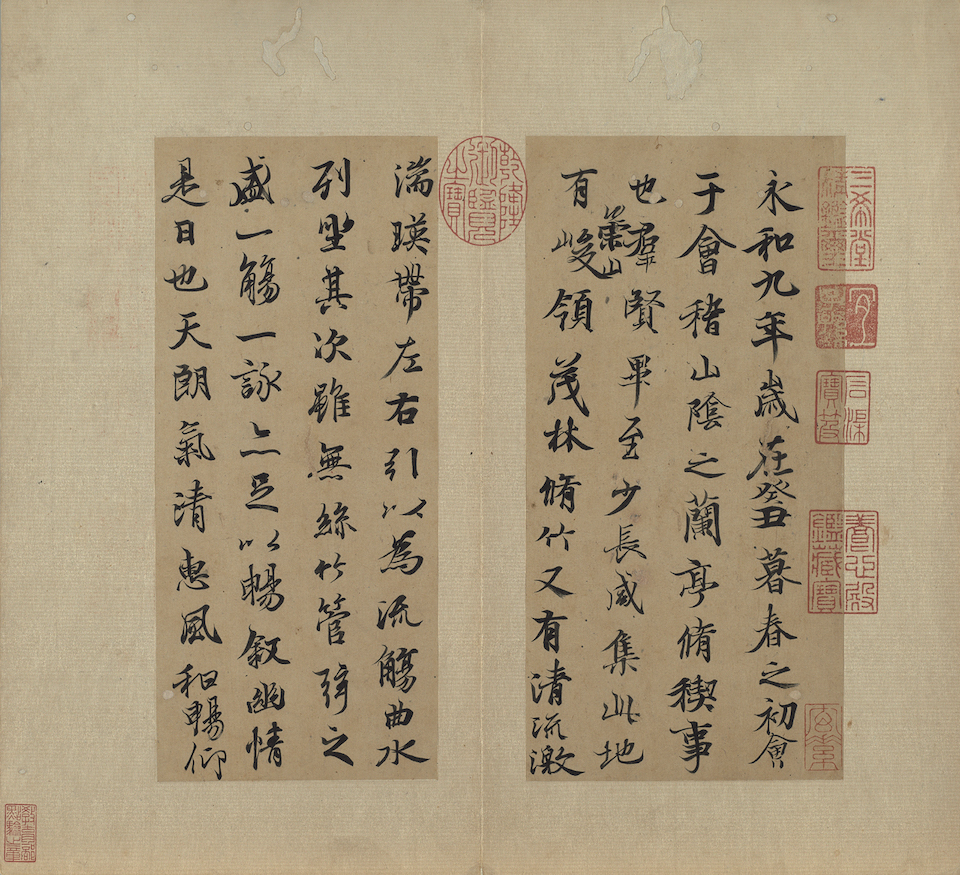 三希堂
精鑑璽
宜子孫
石渠
寶笈
養心殿
鑑藏寶
永和九年歲在癸丑暮春之初會
于會稽山陰之蘭亭脩禊事
也羣賢畢至少長咸集此地
有崇山峻領茂林脩竹又有清流激
乾隆御覽之寶
湍暎帶左右引以為流觴曲水
列坐其次雖無絲竹管弦之
盛一觴一詠亦足以暢敘幽情
是日也天朗氣清惠風和暢仰
教育部
點驗之章